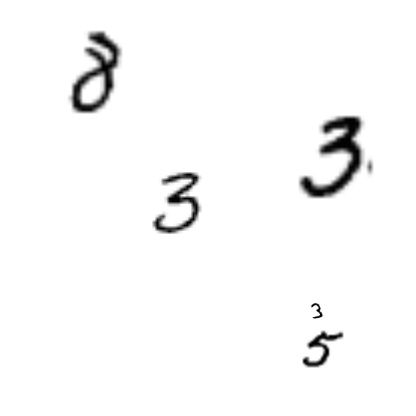 8
3
3
3
5